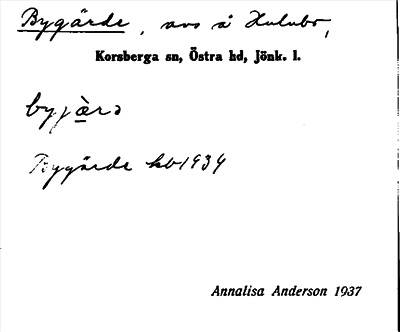 Bygärde, avs å Hulubo,
Korsberga sn, Östra hd, Jönk. l.
byjæ̀rə
Bygärde kb 1934
Annalisa Anderson 1937